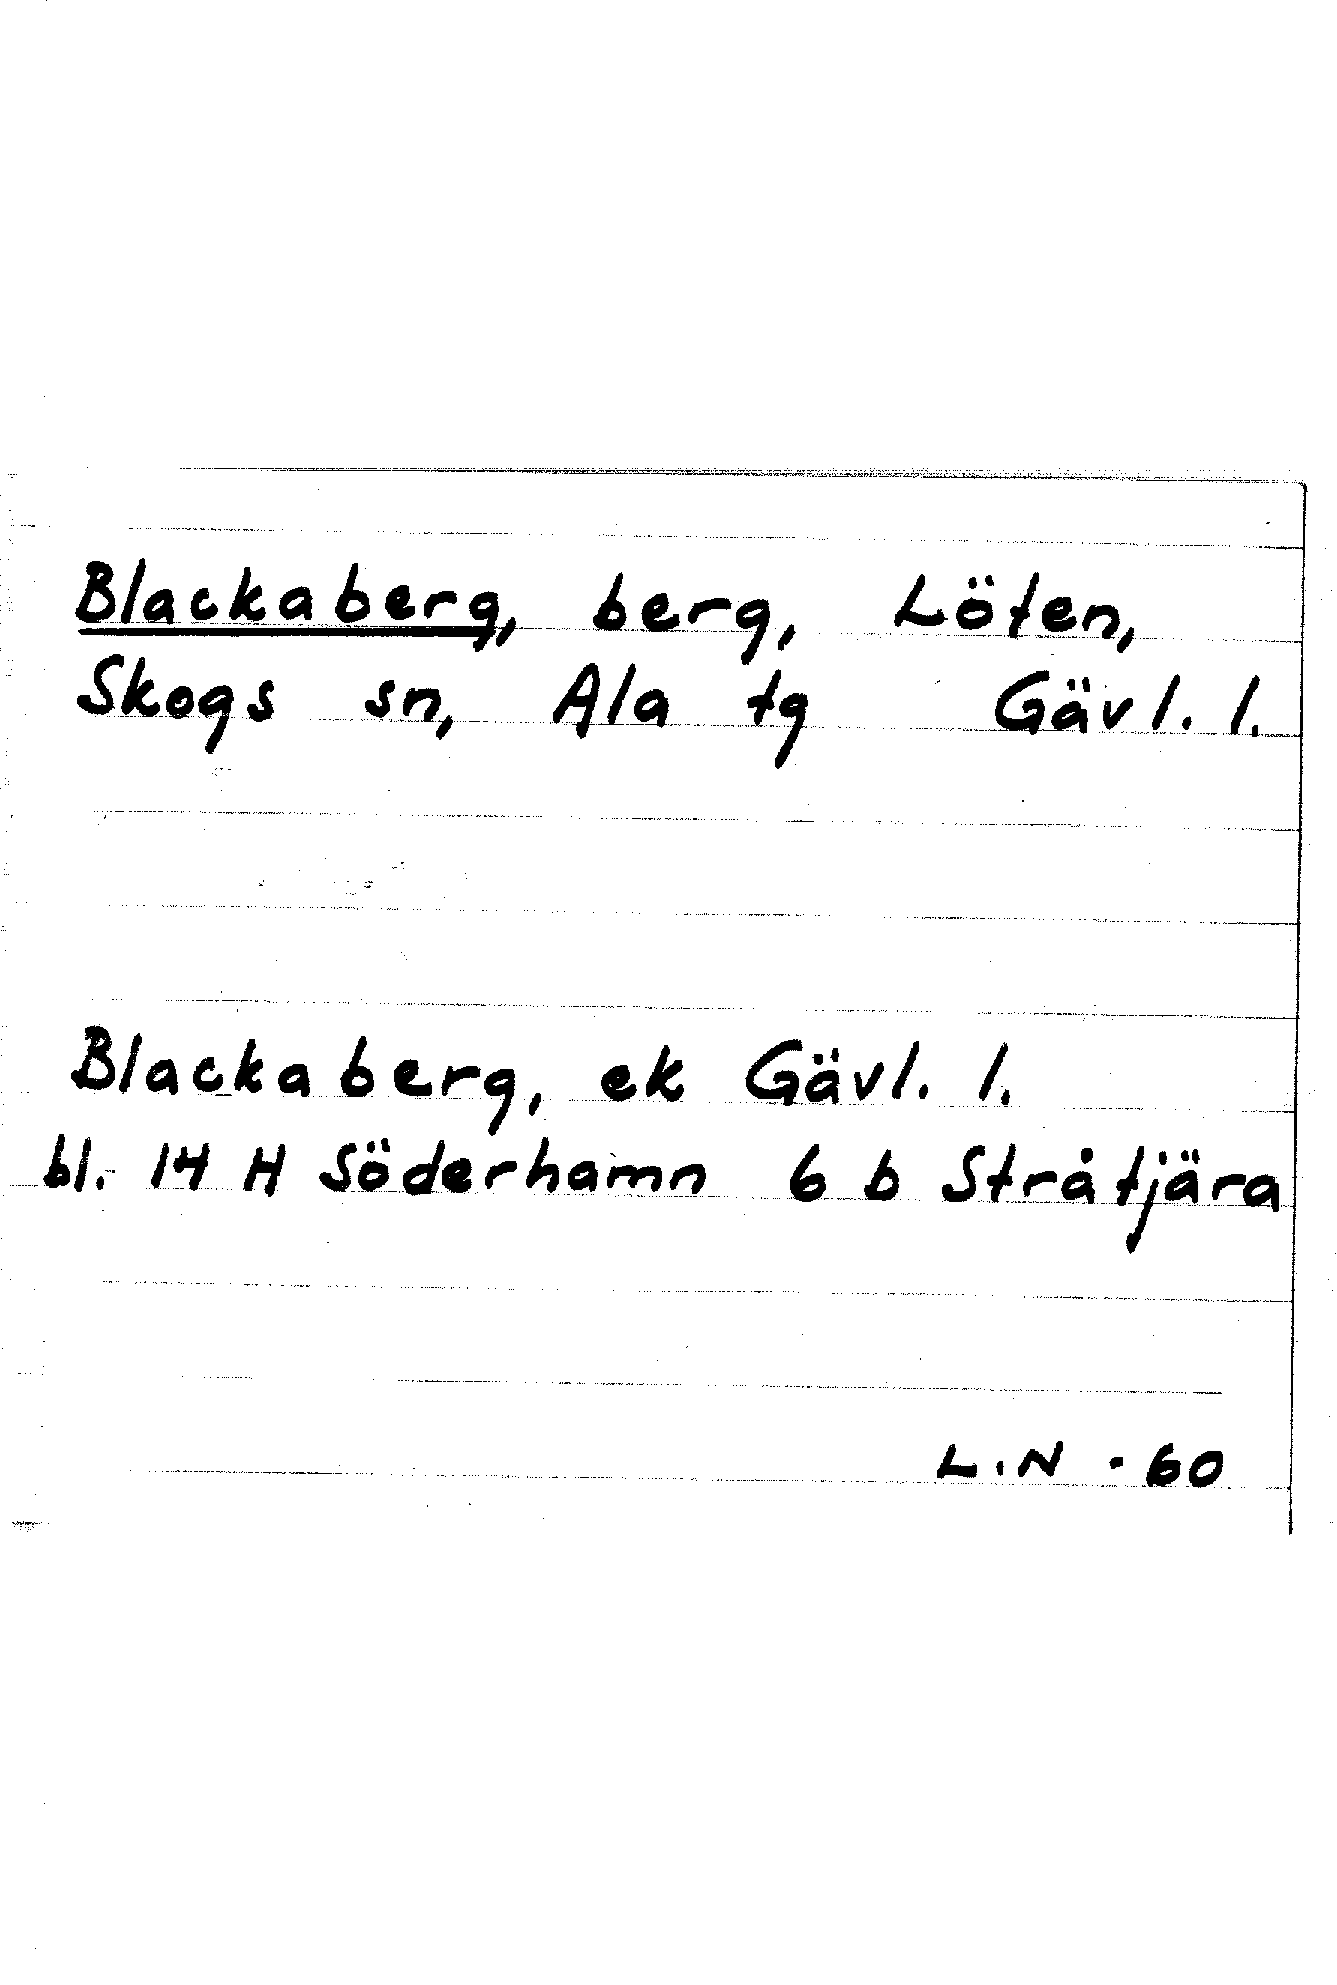 Blackaberg, berg, Löten,
Skogs sn, Ala tg Gävl. l.
Blackaberg, ek Gävl. l.
bl. 14 H Söderhamn 6 b Stråtjära
L.N - 60